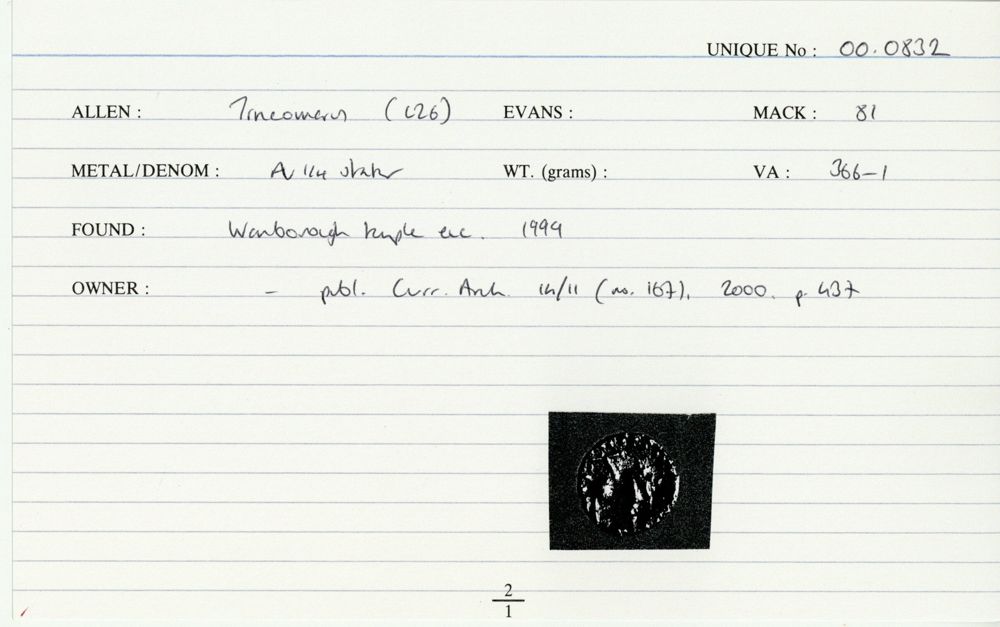 UNIQUE No : 00.0832
ALLEN : Tincomerus (L26) EVANS : MACK : 81
METAL/DENOM : AV 1/4 stater WT. (grams) : VA : 366-1
FOUND : Wanborough temple exc. 1999
OWNER : - publ. Curr. Arch. 14/11 (no. 167), 2000, p. 437
2
1